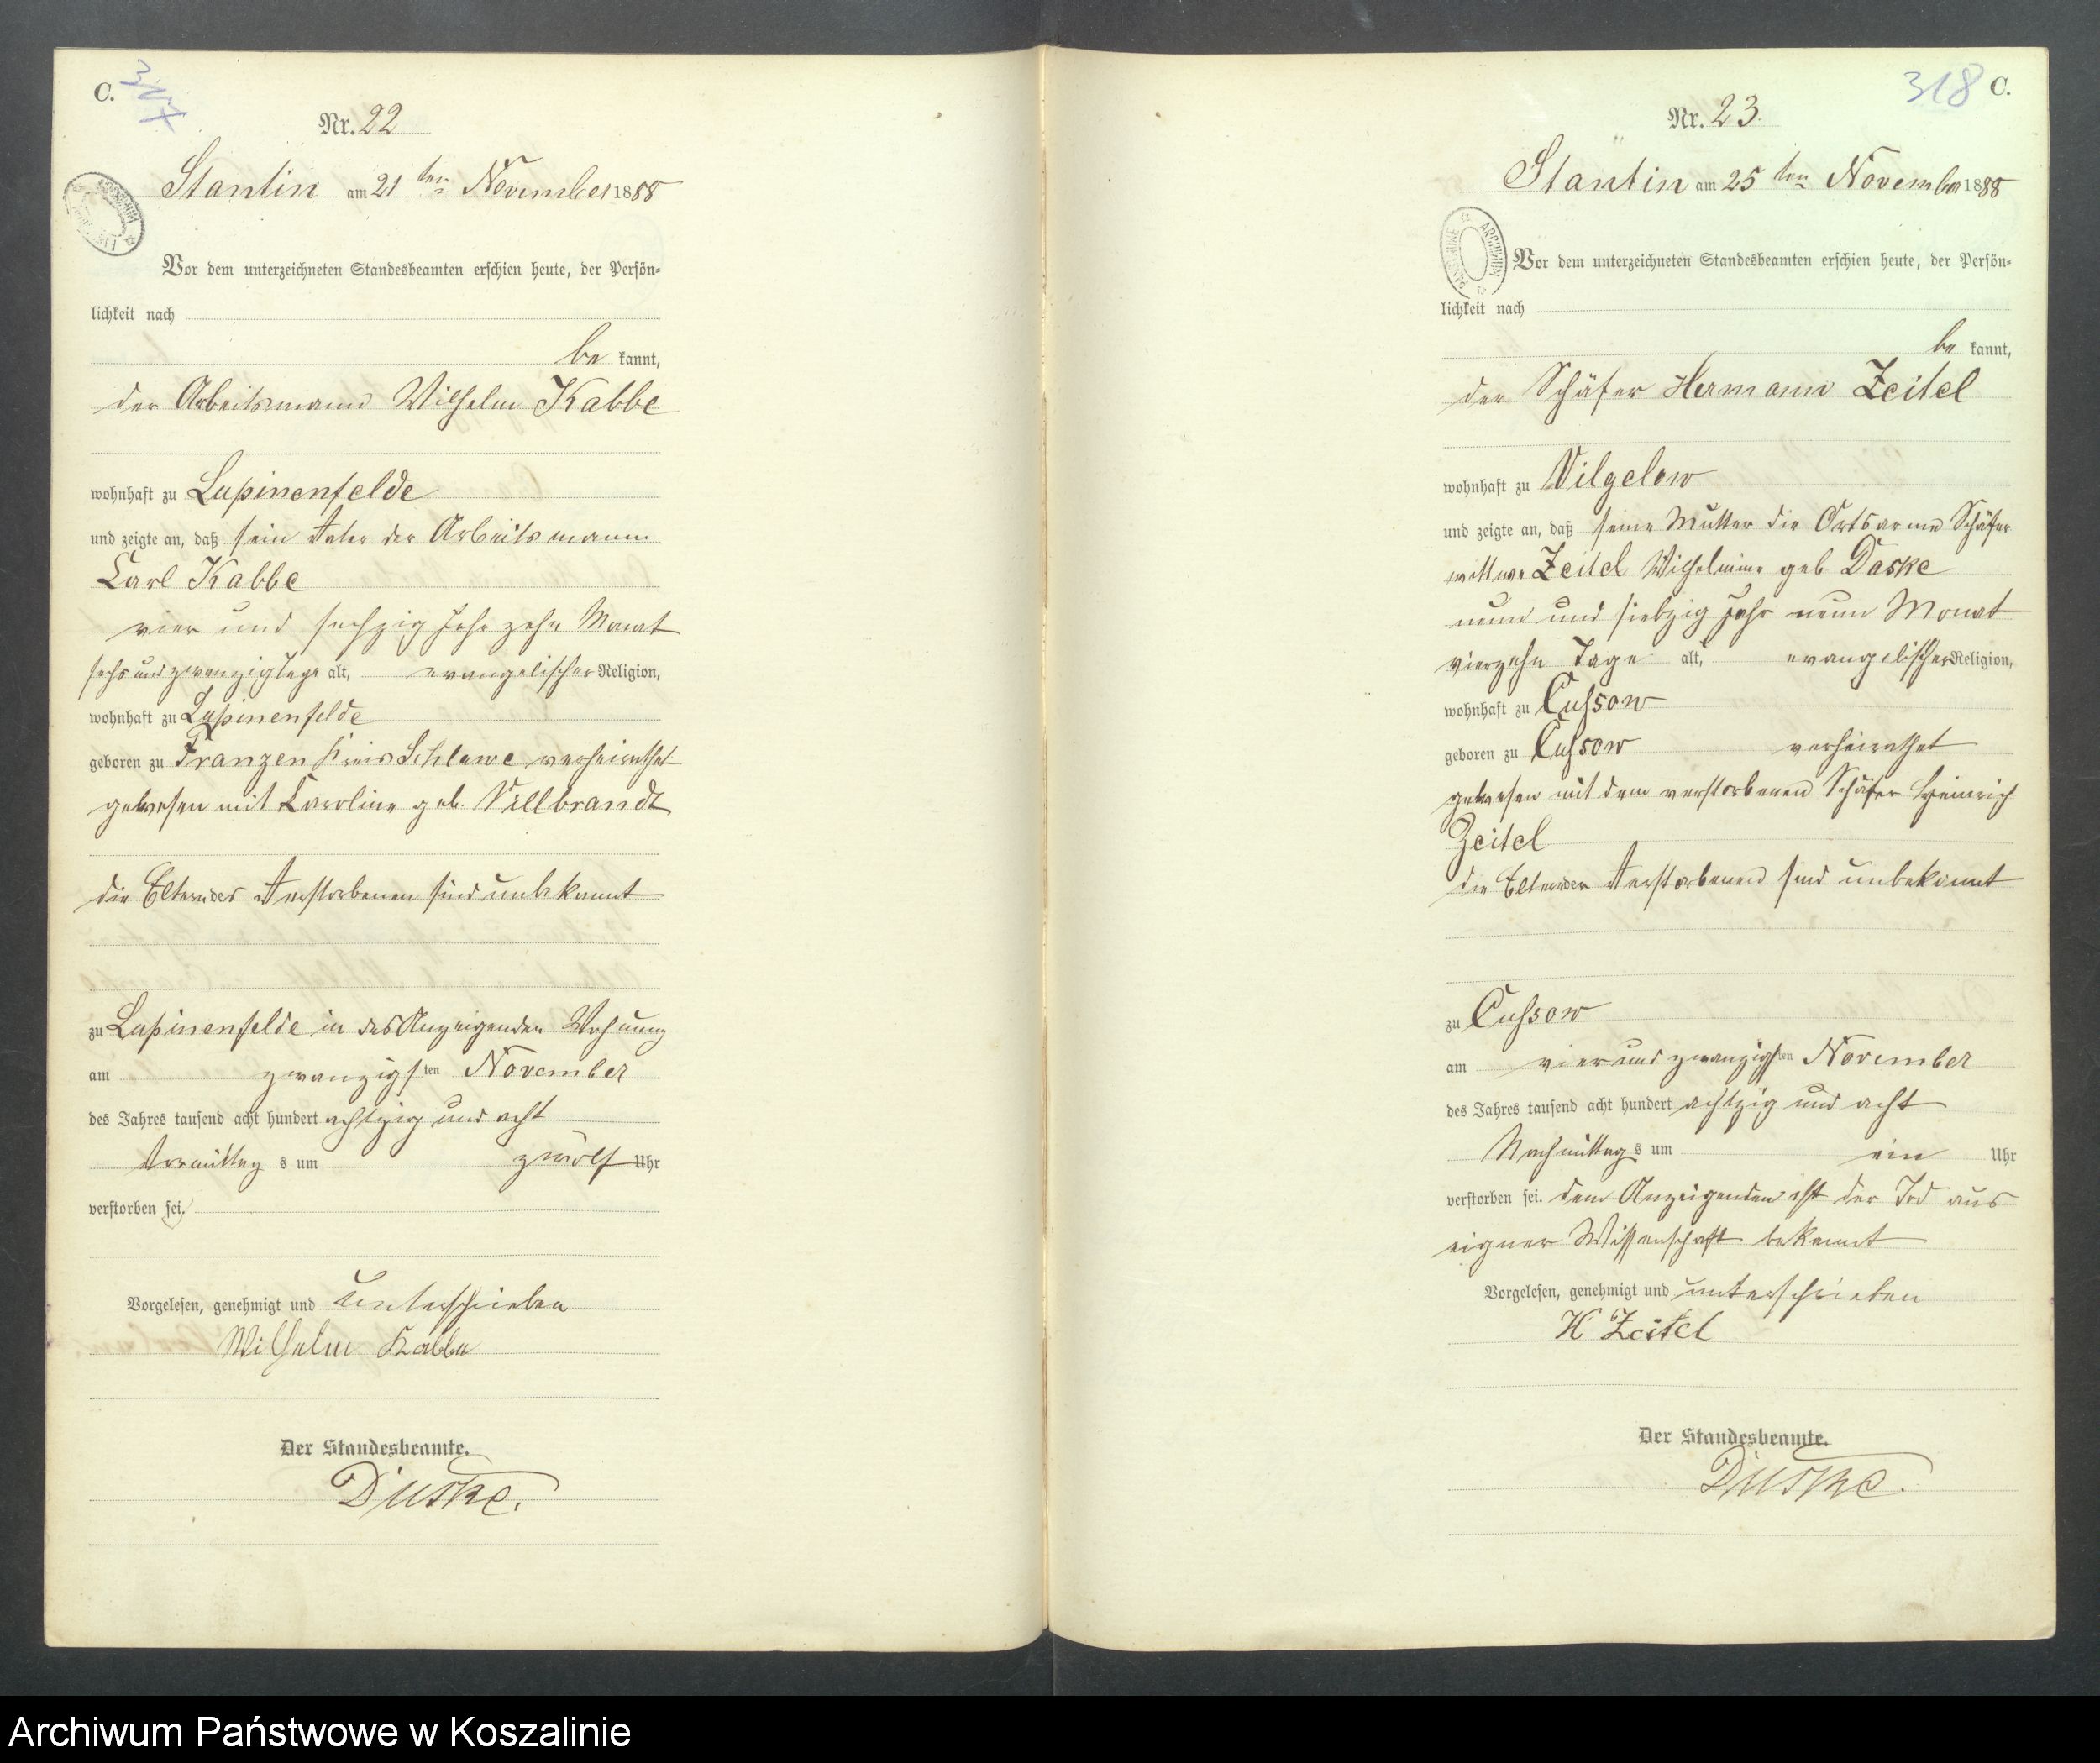 C. 317
Nr. 22
Stantin am 21ten November 1888
Vor dem unterzeichneten Standesbeamten erschien heute, der Persön-
lichkeit nach
be kannt,
der Arbeitsmann Wilhelm Kabbe
wohnhaft zu Lupinenfelde
und zeigte an, daß sein Vater der Arbeitsmann
Carl Kabbe
vier und sechzig Jahr zehn Monat
sechs und zwanzig Tage alt, evangelischer Religion,
wohnhaft zu Lupinenfelde
geboren zu Franzen Kreis Schlawe verheirathet
gewesen mit Karoline geb. Villbrandt
die Eltern des Verstorbenen sind unbekannt
zu Lupinenfelde in des Anzeigenden Wohnung
am zwanzigsten November
des Jahres tausend acht hundert achtzig und acht
Vormittags um zwölf Uhr
verstorben sei.
Vorgelesen, genehmigt und unterschrieben
Wilhelm Kabbe
Der Standesbeamte.
Duske.
318 C.
Nr. 23.
Stantin am 25ten November 1888
ARCHIWUM
Vor dem unterzeichneten Standesbeamten erschien heute, der Persön-
lichkeit nach
be kannt,
der Schäfer Hermann Zeitel
wohnhaft zu Vilgelow
und zeigte an, daß seine Mutter die Ortsarme Schäfer
wittwe Zeitel Wilhelmine geb. Daske
neun und siebzig Jahr neun Monat
vierzehn Tage alt, evangelischer Religion,
wohnhaft zu Cussow
geboren zu Cussow verheirathet
gewesen mit dem verstorbenen Schäfer Heinrich
Zeitel
die Eltern der Verstorbenen sind unbekannt
zu Cussow
am vier und zwanzigsten November
des Jahres tausend acht hundert achtzig und acht
Nachmittags um ein Uhr
verstorben sei. dem Anzeigenden ist der Tod aus
eigner Wissenschaft bekannt
Vorgelesen, genehmigt und unterschrieben
H Zeitel
Der Standesbeamte.
Duske.
Archiwum Państwowe w Koszalinie